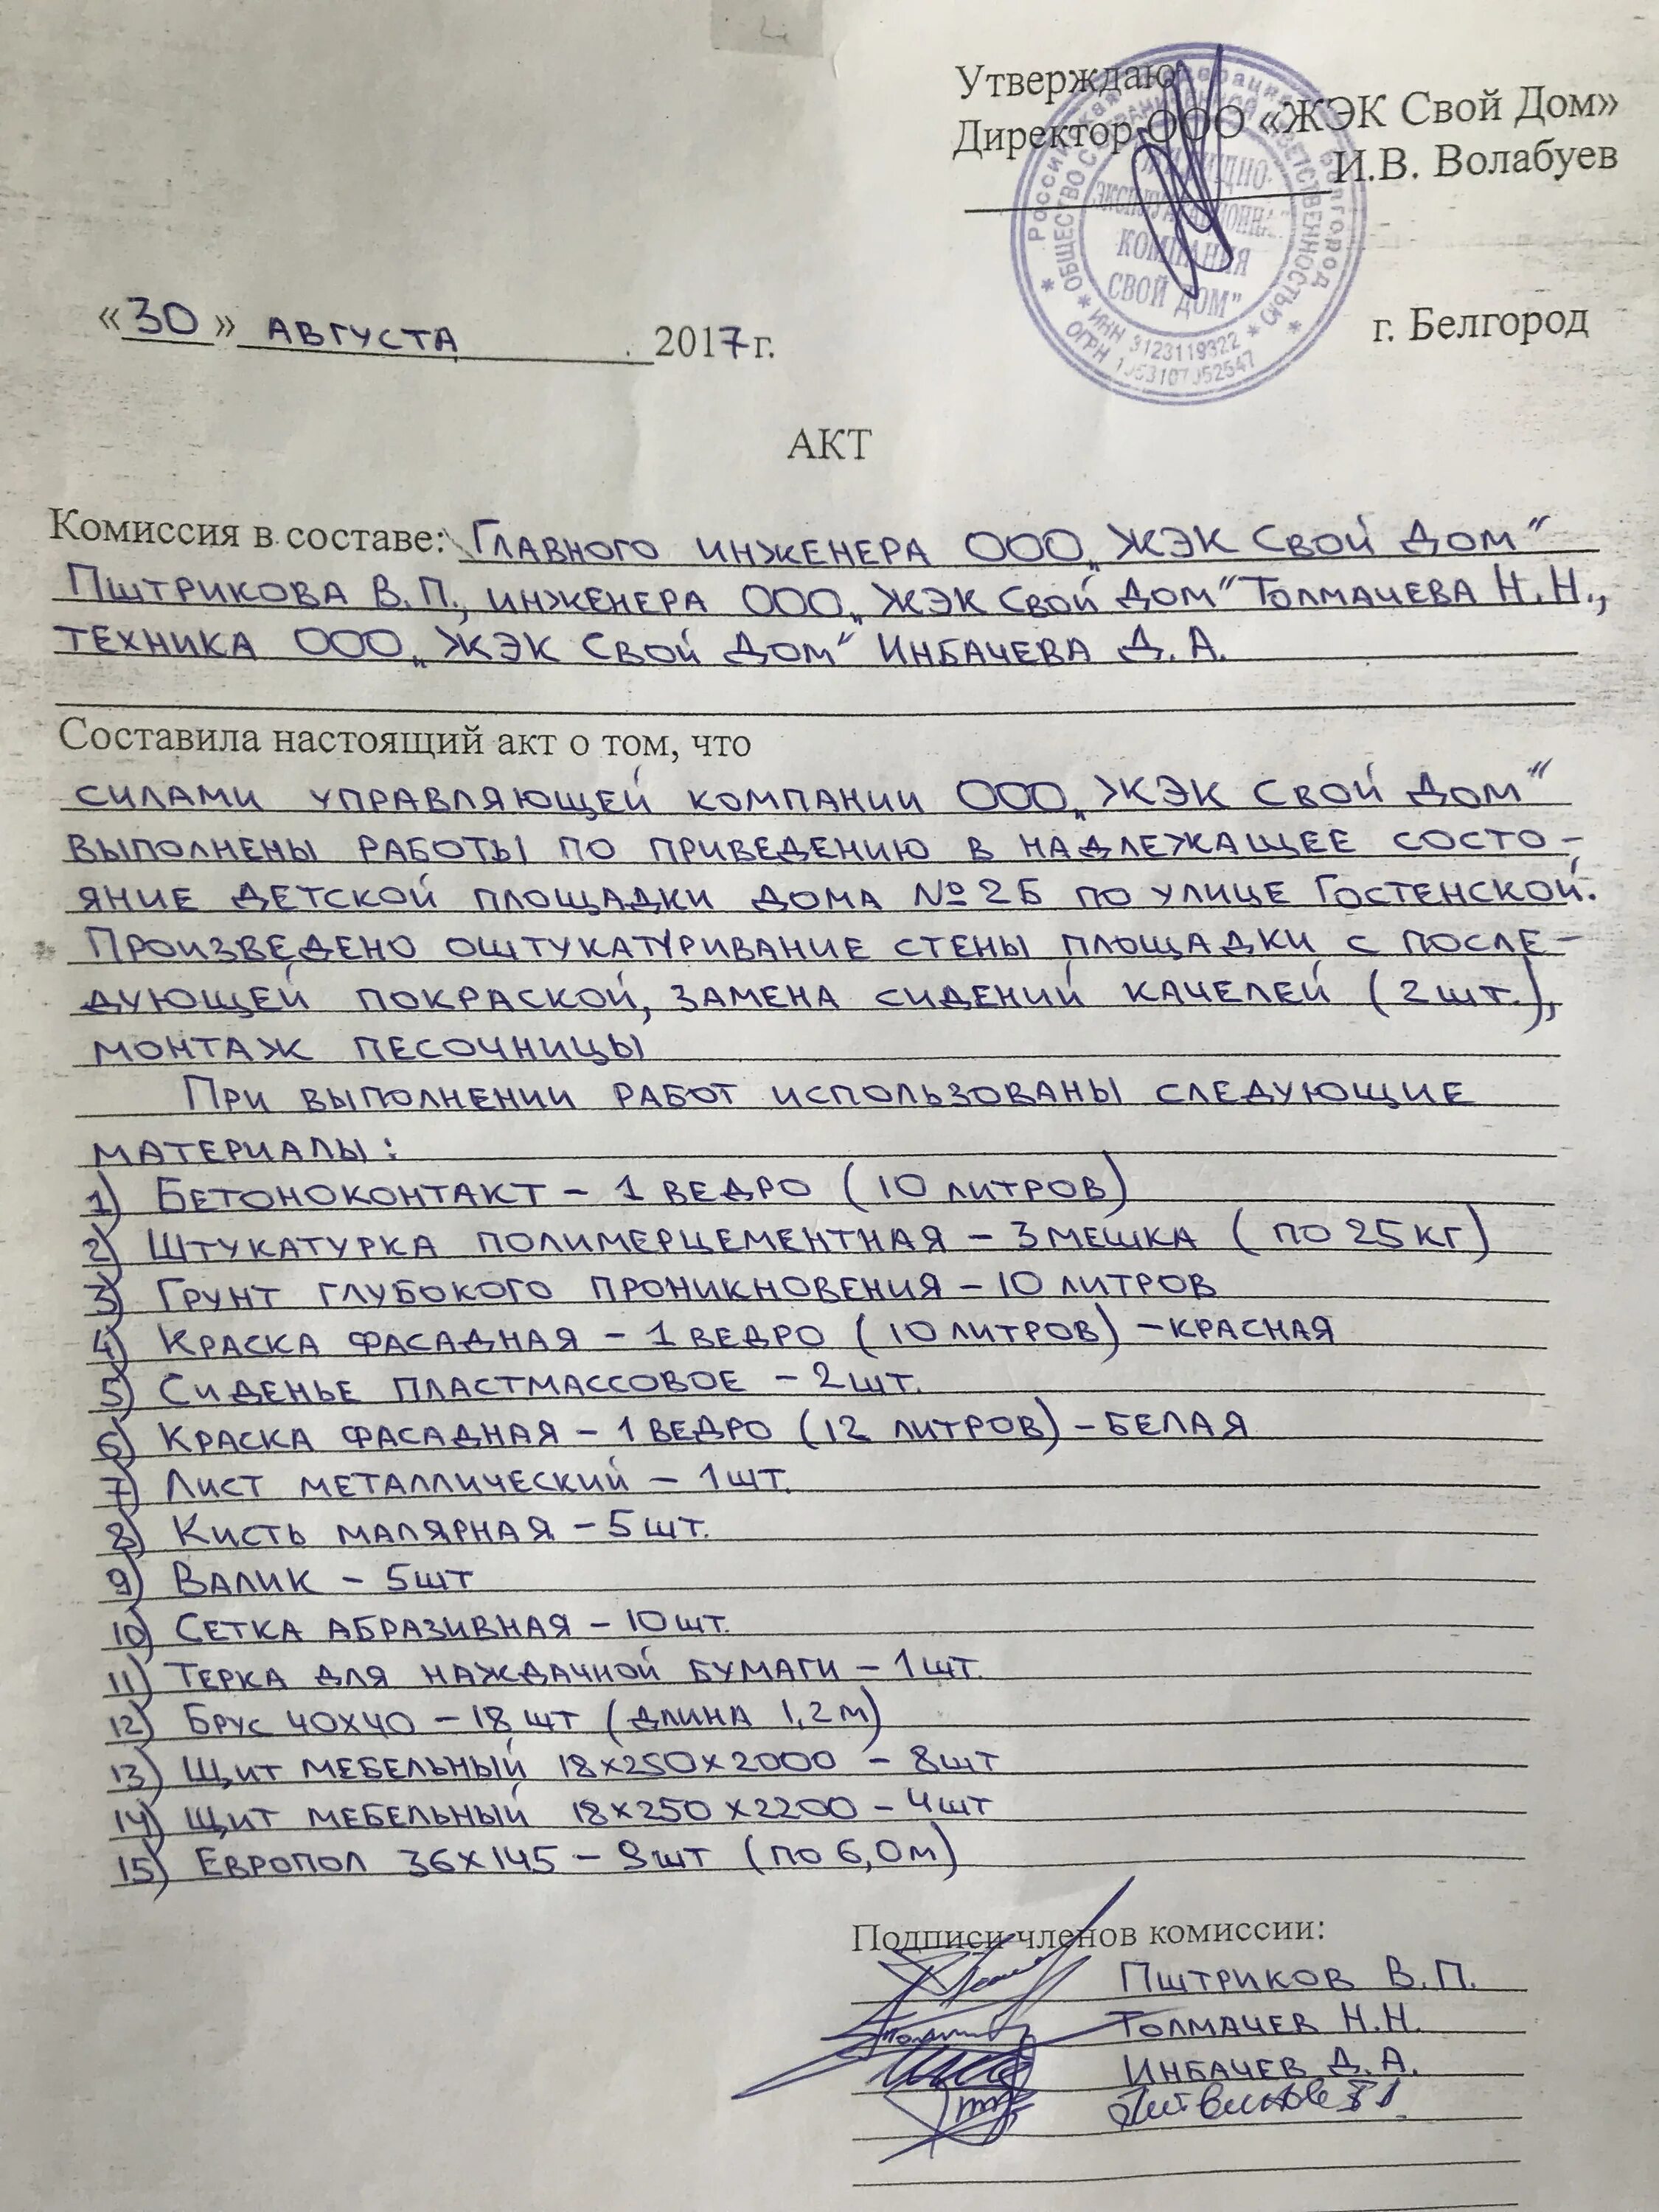 Утверждаю
Директор ООО «ЖЭК Свой Дом»
И.В. Волабуев
Российская Федерация г. Белгород
ОБЩЕСТВО С ОГРАНИЧЕННОЙ ОТВЕТСТВЕННОСТЬЮ
ЖИЛИЩНО-
ЭКСПЛУАТАЦИОННАЯ
КОМПАНИЯ
СВОЙ ДОМ"
ИНН 3123119322
ОГРН
«30» АВГУСТА 2017 г.
г. Белгород
АКТ
Комиссия в составе: ГЛАВНОГО ИНЖЕНЕРА ООО „ЖЭК СВОЙ ДОМ“
ПШТРИКОВА В.П., ИНЖЕНЕРА ООО „ЖЭК СВОЙ ДОМ“ ТОЛМАЧЕВА Н.Н.,
ТЕХНИКА ООО „ЖЭК СВОЙ ДОМ“ ИНБАЧЕВА Д.А.
Составила настоящий акт о том, что
СИЛАМИ УПРАВЛЯЮЩЕЙ КОМПАНИИ ООО „ЖЭК СВОЙ ДОМ“
ВЫПОЛНЕНЫ РАБОТЫ ПО ПРИВЕДЕНИЮ В НАДЛЕЖАЩЕЕ СОСТО-
ЯНИЕ ДЕТСКОЙ ПЛОЩАДКИ ДОМА №2Б ПО УЛИЦЕ ГОСТЕНСКОЙ.
ПРОИЗВЕДЕНО ОШТУКАТУРИВАНИЕ СТЕНЫ ПЛОЩАДКИ С ПОСЛЕ-
ДУЮЩЕЙ ПОКРАСКОЙ, ЗАМЕНА СИДЕНИЙ КАЧЕЛЕЙ (2 ШТ.),
МОНТАЖ ПЕСОЧНИЦЫ
ПРИ ВЫПОЛНЕНИИ РАБОТ ИСПОЛЬЗОВАНЫ СЛЕДУЮЩИЕ
МАТЕРИАЛЫ:
1) БЕТОНОКОНТАКТ – 1 ВЕДРО (10 ЛИТРОВ)
2) ШТУКАТУРКА ПОЛИМЕРЦЕМЕНТНАЯ – 3 МЕШКА (ПО 25 КГ)
3) ГРУНТ ГЛУБОКОГО ПРОНИКНОВЕНИЯ – 10 ЛИТРОВ
4) КРАСКА ФАСАДНАЯ – 1 ВЕДРО (10 ЛИТРОВ) – КРАСНАЯ
5) СИДЕНЬЕ ПЛАСТМАССОВОЕ – 2 ШТ.
6) КРАСКА ФАСАДНАЯ – 1 ВЕДРО (12 ЛИТРОВ) – БЕЛАЯ
7) ЛИСТ МЕТАЛЛИЧЕСКИЙ – 1 ШТ.
8) КИСТЬ МАЛЯРНАЯ – 5 ШТ.
9) ВАЛИК – 5 ШТ
10) СЕТКА АБРАЗИВНАЯ – 10 ШТ.
11) ТЕРКА ДЛЯ НАЖДАЧНОЙ БУМАГИ – 1 ШТ.
12) БРУС 40Х40 – 18 ШТ (ДЛИНА 1,2 М)
13) ЩИТ МЕБЕЛЬНЫЙ 18×250×2000 – 8 ШТ
14) ЩИТ МЕБЕЛЬНЫЙ 18×250×2200 – 4 ШТ
15) ЕВРОПОЛ 36×145 – 9 ШТ (ПО 6,0 М)
Подписи членов комиссии:
ПШТРИКОВ В.П.
ТОЛМАЧЕВ Н.Н.
ИНБАЧЕВ Д.А.